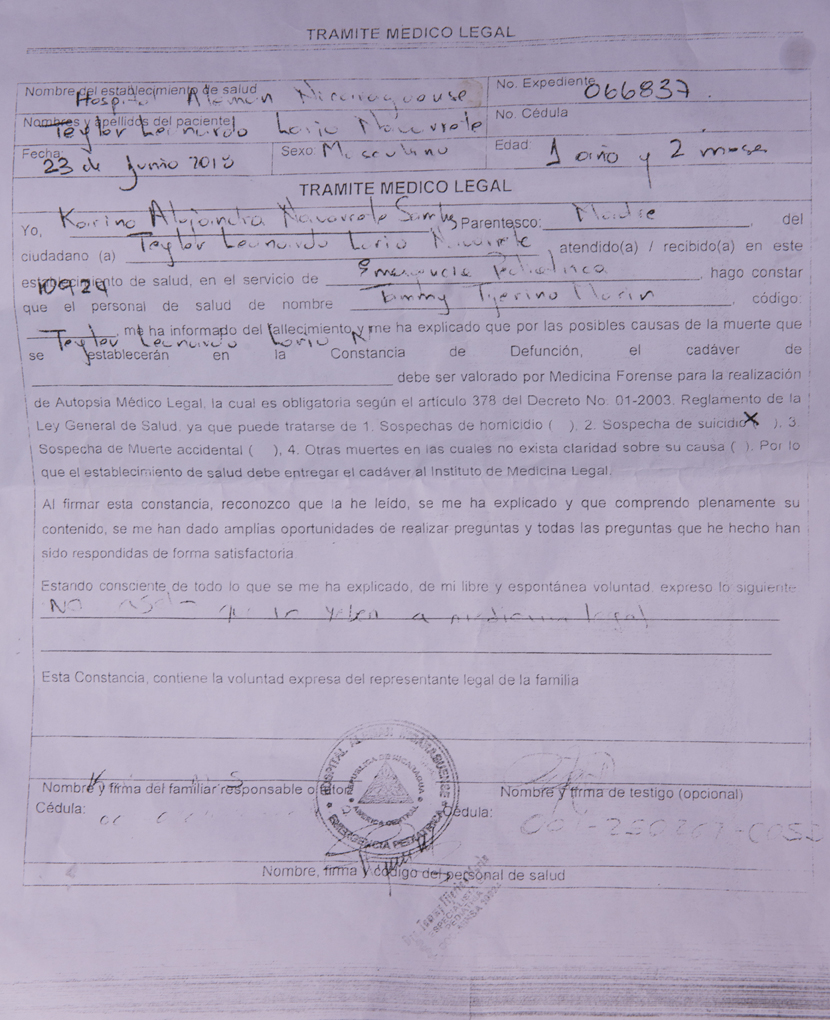 TRAMITE MEDICO LEGAL
Nombre del establecimiento de salud Hospital Alemán Nicaraguense No. Expediente 066837
Nombres y apellidos del paciente Teylor Leonardo Lorio Navarrete No. Cédula
Fecha: 23 de Junio 2018 Sexo: Masculino Edad: 1 año y 2 meses
TRAMITE MEDICO LEGAL
Yo, Karina Alejandra Navarrete Parentesco: Madre, del
ciudadano (a) Teylor Leonardo Lorio Navarrete, atendido(a) / recibido(a) en este
establecimiento de salud, en el servicio de Emergencia Pediatrica, hago constar
que el personal de salud de nombre Tammy Tijerino, código:
10424
Teylor Leonardo Lorio N, me ha informado del fallecimiento y me ha explicado que por las posibles causas de la muerte que
se establecerán en la Constancia de Defunción, el cadáver de
debe ser valorado por Medicina Forense para la realización
de Autopsia Médico Legal, la cual es obligatoria según el artículo 378 del Decreto No. 01-2003. Reglamento de la
Ley General de Salud, ya que puede tratarse de 1. Sospechas de homicidio ( ), 2. Sospecha de suicidio X ), 3.
Sospecha de Muerte accidental ( ), 4. Otras muertes en las cuales no exista claridad sobre su causa ( ). Por lo
que el establecimiento de salud debe entregar el cadáver al Instituto de Medicina Legal.
Al firmar esta constancia, reconozco que la he leído, se me ha explicado y que comprendo plenamente su
contenido, se me han dado amplias oportunidades de realizar preguntas y todas las preguntas que he hecho han
sido respondidas de forma satisfactoria
Estando consciente de todo lo que se me ha explicado, de mi libre y espontánea voluntad, expreso lo siguiente
No a legal
Esta Constancia, contiene la voluntad expresa del representante legal de la familia
HOSPITAL ALEMAN NICARAGUENSE
REPUBLICA DE NICARAGUA
AMERICA CENTRAL
EMERGENCIA PEDIATRICA
Nombre y firma del familiar responsable o tutor Nombre y firma de testigo (opcional)
Cédula: Cédula:
Nombre, firma y código del personal de salud
PEDIATRICA